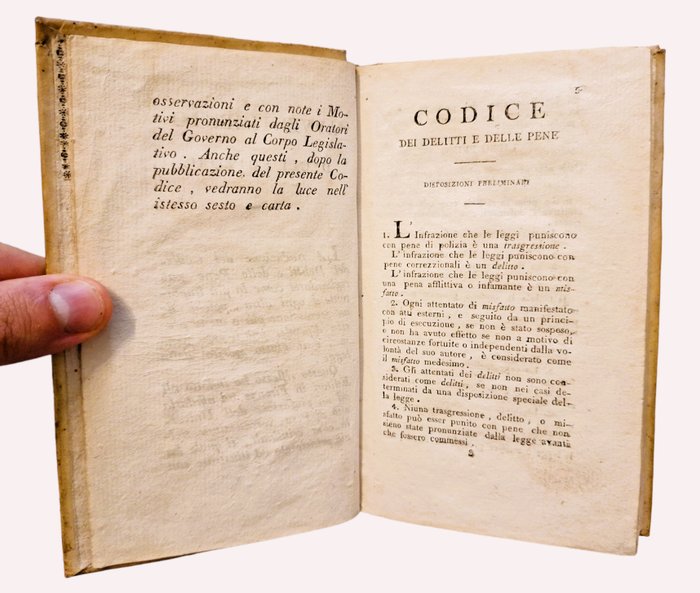 osservazioni e con note i Mo-
tivi pronunziati dagli Oratori
del Governo al Corpo Legisla-
tivo . Anche questi , dopo la
pubblicazione del presente Co-
dice , vedranno la luce nell'
istesso sesto e carta .
CODICE
DEI DELITTI E DELLE PENE
DISPOSIZIONI PRELIMINARI
1. L'Infrazione che le leggi puniscono
con pene di polizia è una trasgressione .
L'infrazione che le leggi puniscono con
pene correzzionali è un delitto .
L'infrazione che le leggi puniscono con
una pena afflittiva o infamante è un mis-
fatto .
2. Ogni attentato di misfatto manifestato
con atti esterni , e seguito da un princi-
pio di esecuzione , se non è stato sospeso,
o non ha avuto effetto se non a motivo di
circostanze fortuite o independenti dalla vo-
lontà del suo autore , è considerato come
il misfatto medesimo .
3. Gli attentati dei delitti non sono con-
siderati come delitti , se non nei casi de-
terminati da una disposizione speciale del-
la legge .
4. Niuna trasgressione , delitto , o mi-
sfatto può esser punito con pene che non
sieno state pronunziate dalla legge avanti
che fossero commessi .